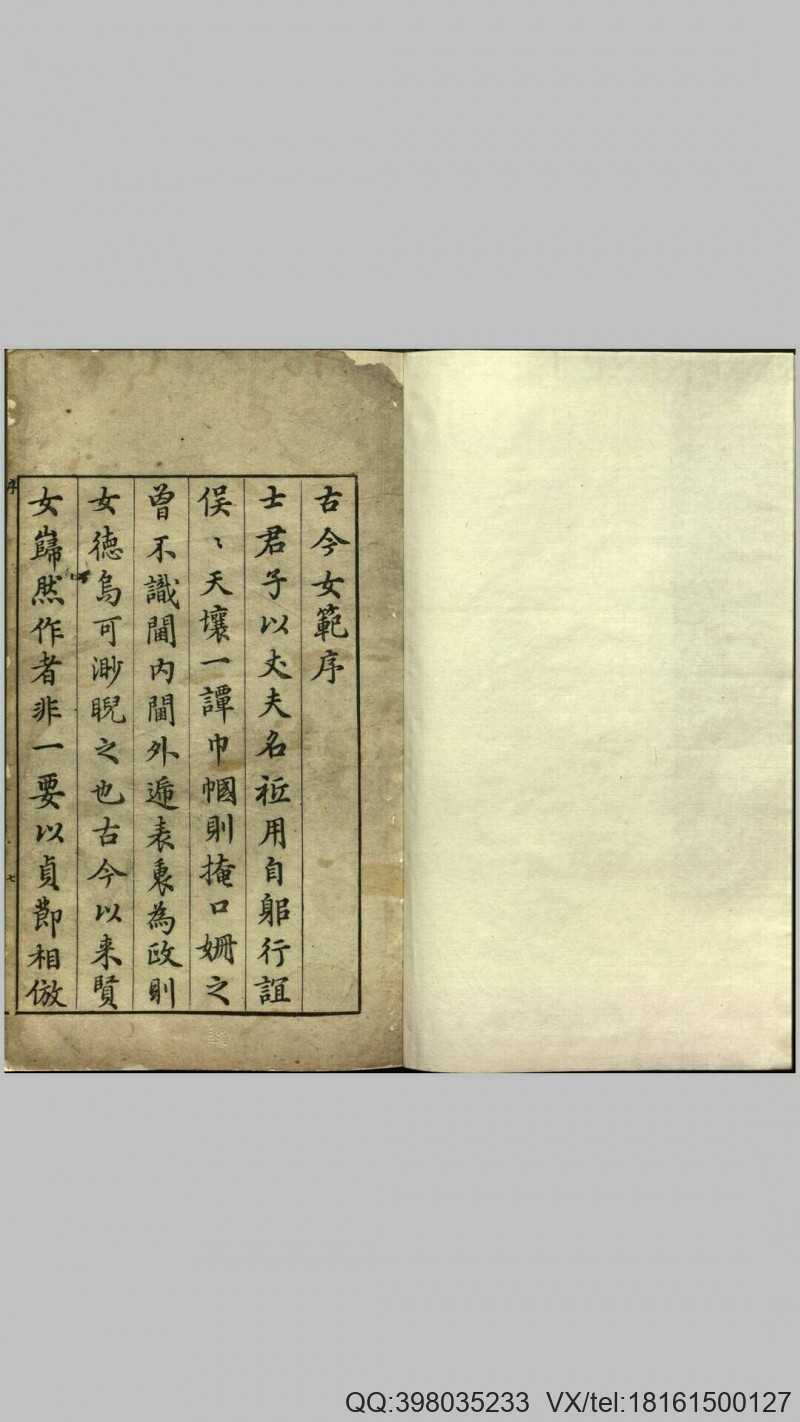 古今女範序
士君子以丈夫名袛用自躳行誼
俣〻天壤一譚巾幗則掩口姍之
曾不識閫内閫外遞表裏為政則
女德烏可渺睨之也古今以来賢
女巋然作者非一要以貞節相倣
序
七
QQ:398035233 VX/tel:18161500127